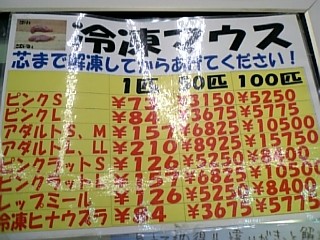 冷凍マウス
芯まで解凍してからあげてください!
1匹 50匹 100匹
ピンクS ¥73 ¥3150 ¥5250
ピンクL ¥84 ¥3675 ¥5775
アダルトS、M ¥157 ¥6825 ¥10500
アダルトL、LL ¥210 ¥8925 ¥15750
ピンクラットS ¥126 ¥5250 ¥8400
ピンクラット ¥6825 ¥10500
ホップミール ¥126 ¥5250 ¥8400
冷凍ヒナウズラ ¥84 ¥3675 ¥5775